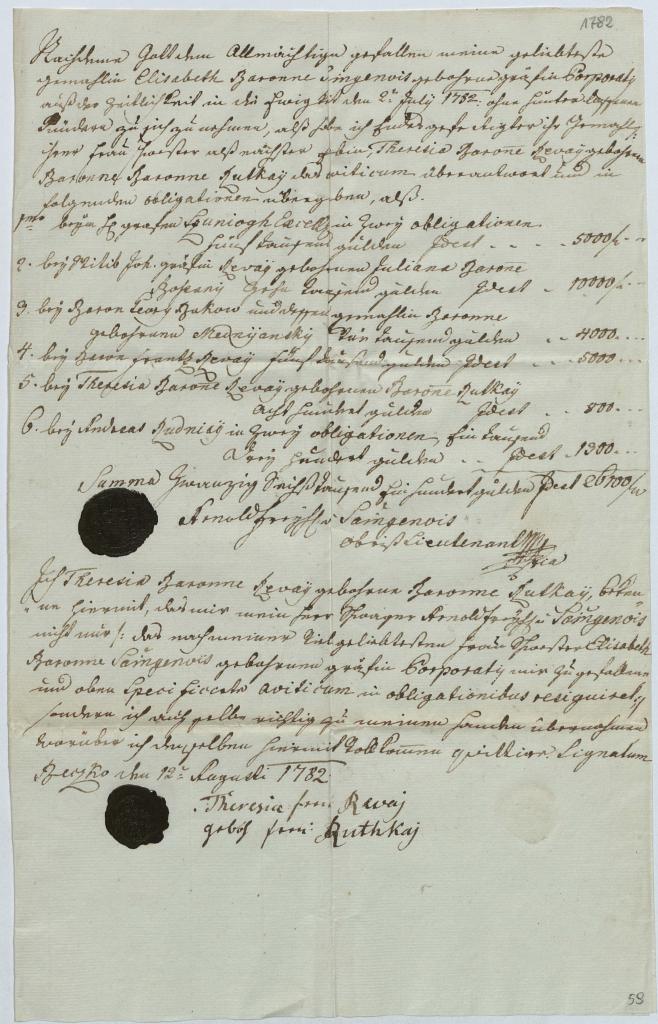 1782
Nachdeme Gott dem Allmächtigen gefallen meine geliebteste
gemahlin Elisabeth Baronne Saingenois gebohrne gräfin Corporaty
auß der Zeitlichkeit in die Ewigkeit den 2t July 1782: ohne hinterlassene
Kündern zu sich zu nehmen, alß habe ich Endesgefertigter ihr Gemahl
ihrer Frau Schwester alß nächster Theresia Barone Revaÿ gebohrne
Baronne Rutkaÿ das aviticum überantwort und in
folgenden obligationen übergeben, alß.
1mo beÿm H grafen Excell: in zweÿ obligationen
fünf tausend gülden Idest - - 5000 f -
2. beÿ Joh. gräfin Revaÿ gebohrnen Juliana Barone
Zehn tausend gülden Idest - 10000 f -
3. beÿ Baron und dessen gemahlin Baronne
gebohrnen Mednÿansky Vier tausend gülden - - 4000 - - -
4. beÿ Baron Frantz Revaÿ fünf tausend gülden Idest - - 5000 - - -
5. beÿ Theresia Barone Revaÿ gebohrnen Barone Rutkaÿ
acht hundert gülden Idest - - 800 - - -
6. beÿ Andreas in zweÿ obligationen Ein tausend
dreÿ hundert gülden - - Idest - 1300 - - -
Summa Zwanzig Sechß tausend Ein hundert gülden Idest 26100 f
Arnold Freÿh v Saingenois
obrist Lieutenant
Ich Theresia Baronne Revaÿ gebohrne Baronne Rutkaÿ, beken-
ne hiermit, das mir mein Herr Schwager Arnold Freÿh v Saingenois
nicht nur /: das nach meiner Vielgeliebtesten Frau Schwester Elisabeth
Baronne Saingenois gebohrnen gräfin Corporatÿ mir zugefallene
und oben specificirte aviticum in obligationibus
sondern ich auch selbe richtig zu meinen handen übernohmen
worüber ich denselben hiermit Vollkomen quittire. Signatum
Beczko den 12t Augusti 1782.
Theresia frei: Revaj
geboh frei: Ruthkaj
58